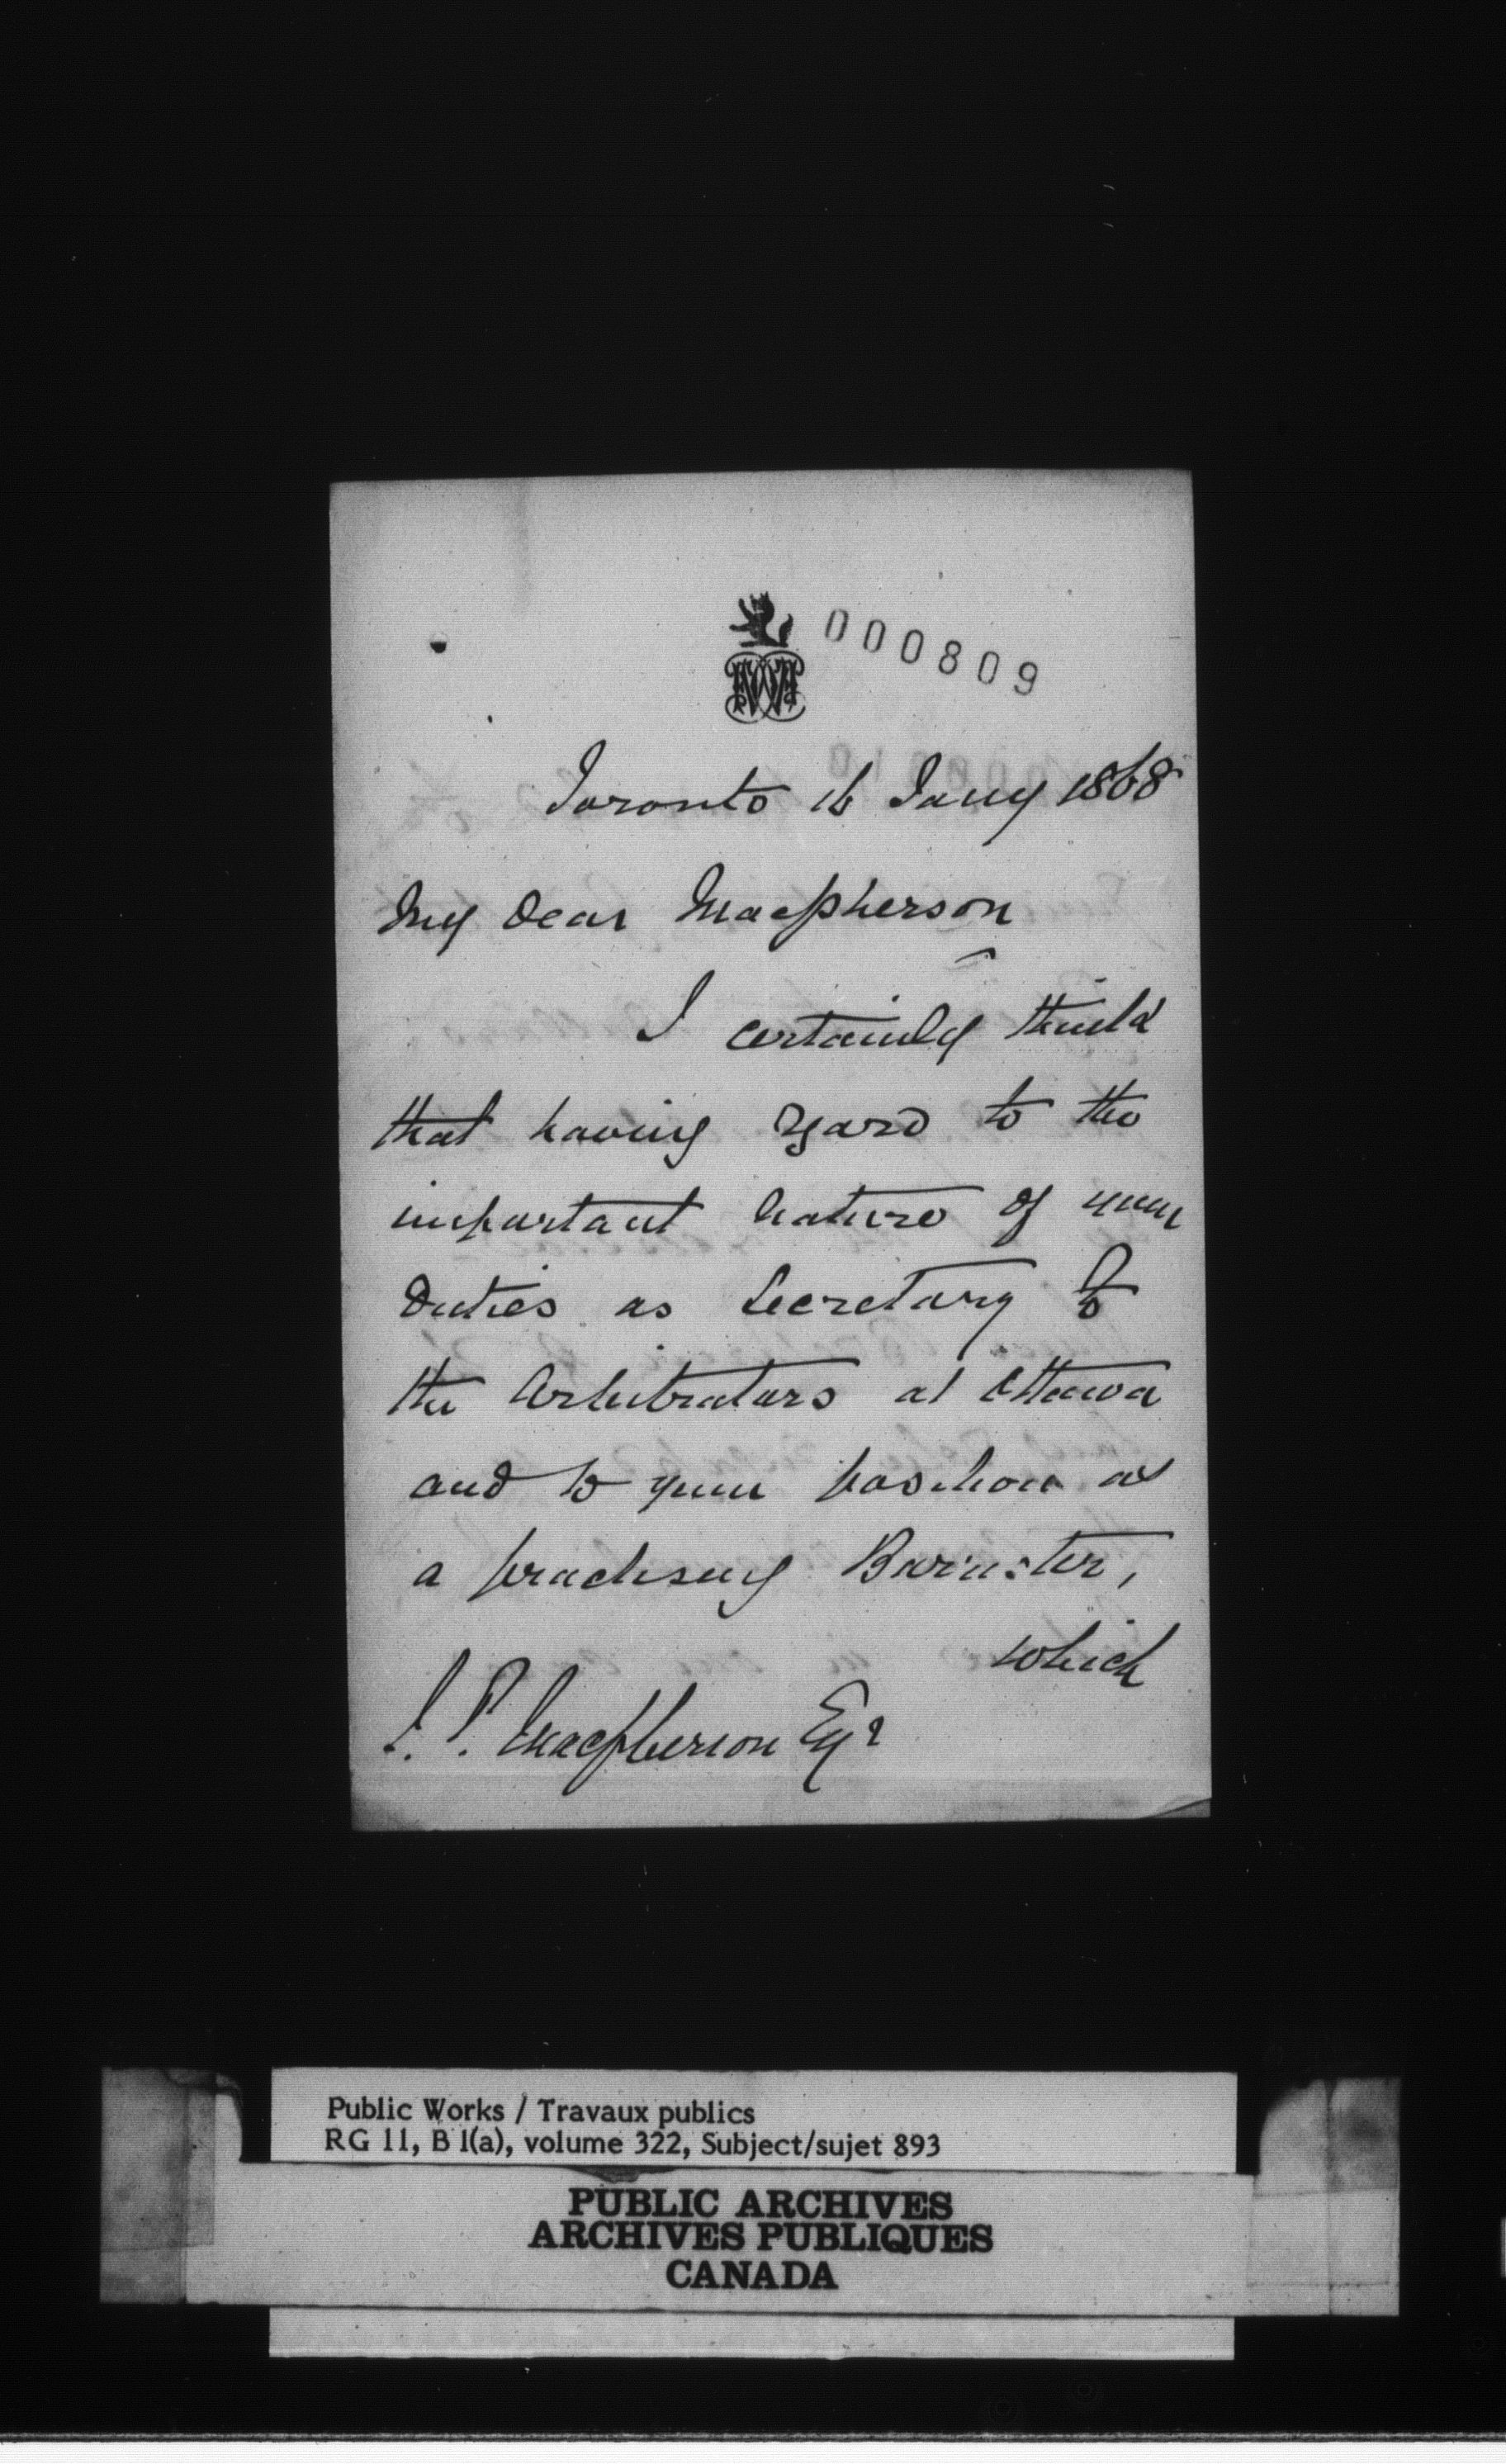 000809
Toronto 16 Jany 1868
My Dear Macpherson
I certainly think
that having regard to the
important nature of your
Duties as Secretary to
the Arbitrators at Ottawa
and to your position as
a practising Barrister,
which
J. P. Macpherson Esqr
Public Works / Travaux publics
RG 11, B 1(a), volume 322, Subject/sujet 893
PUBLIC ARCHIVES
ARCHIVES PUBLIQUES
CANADA